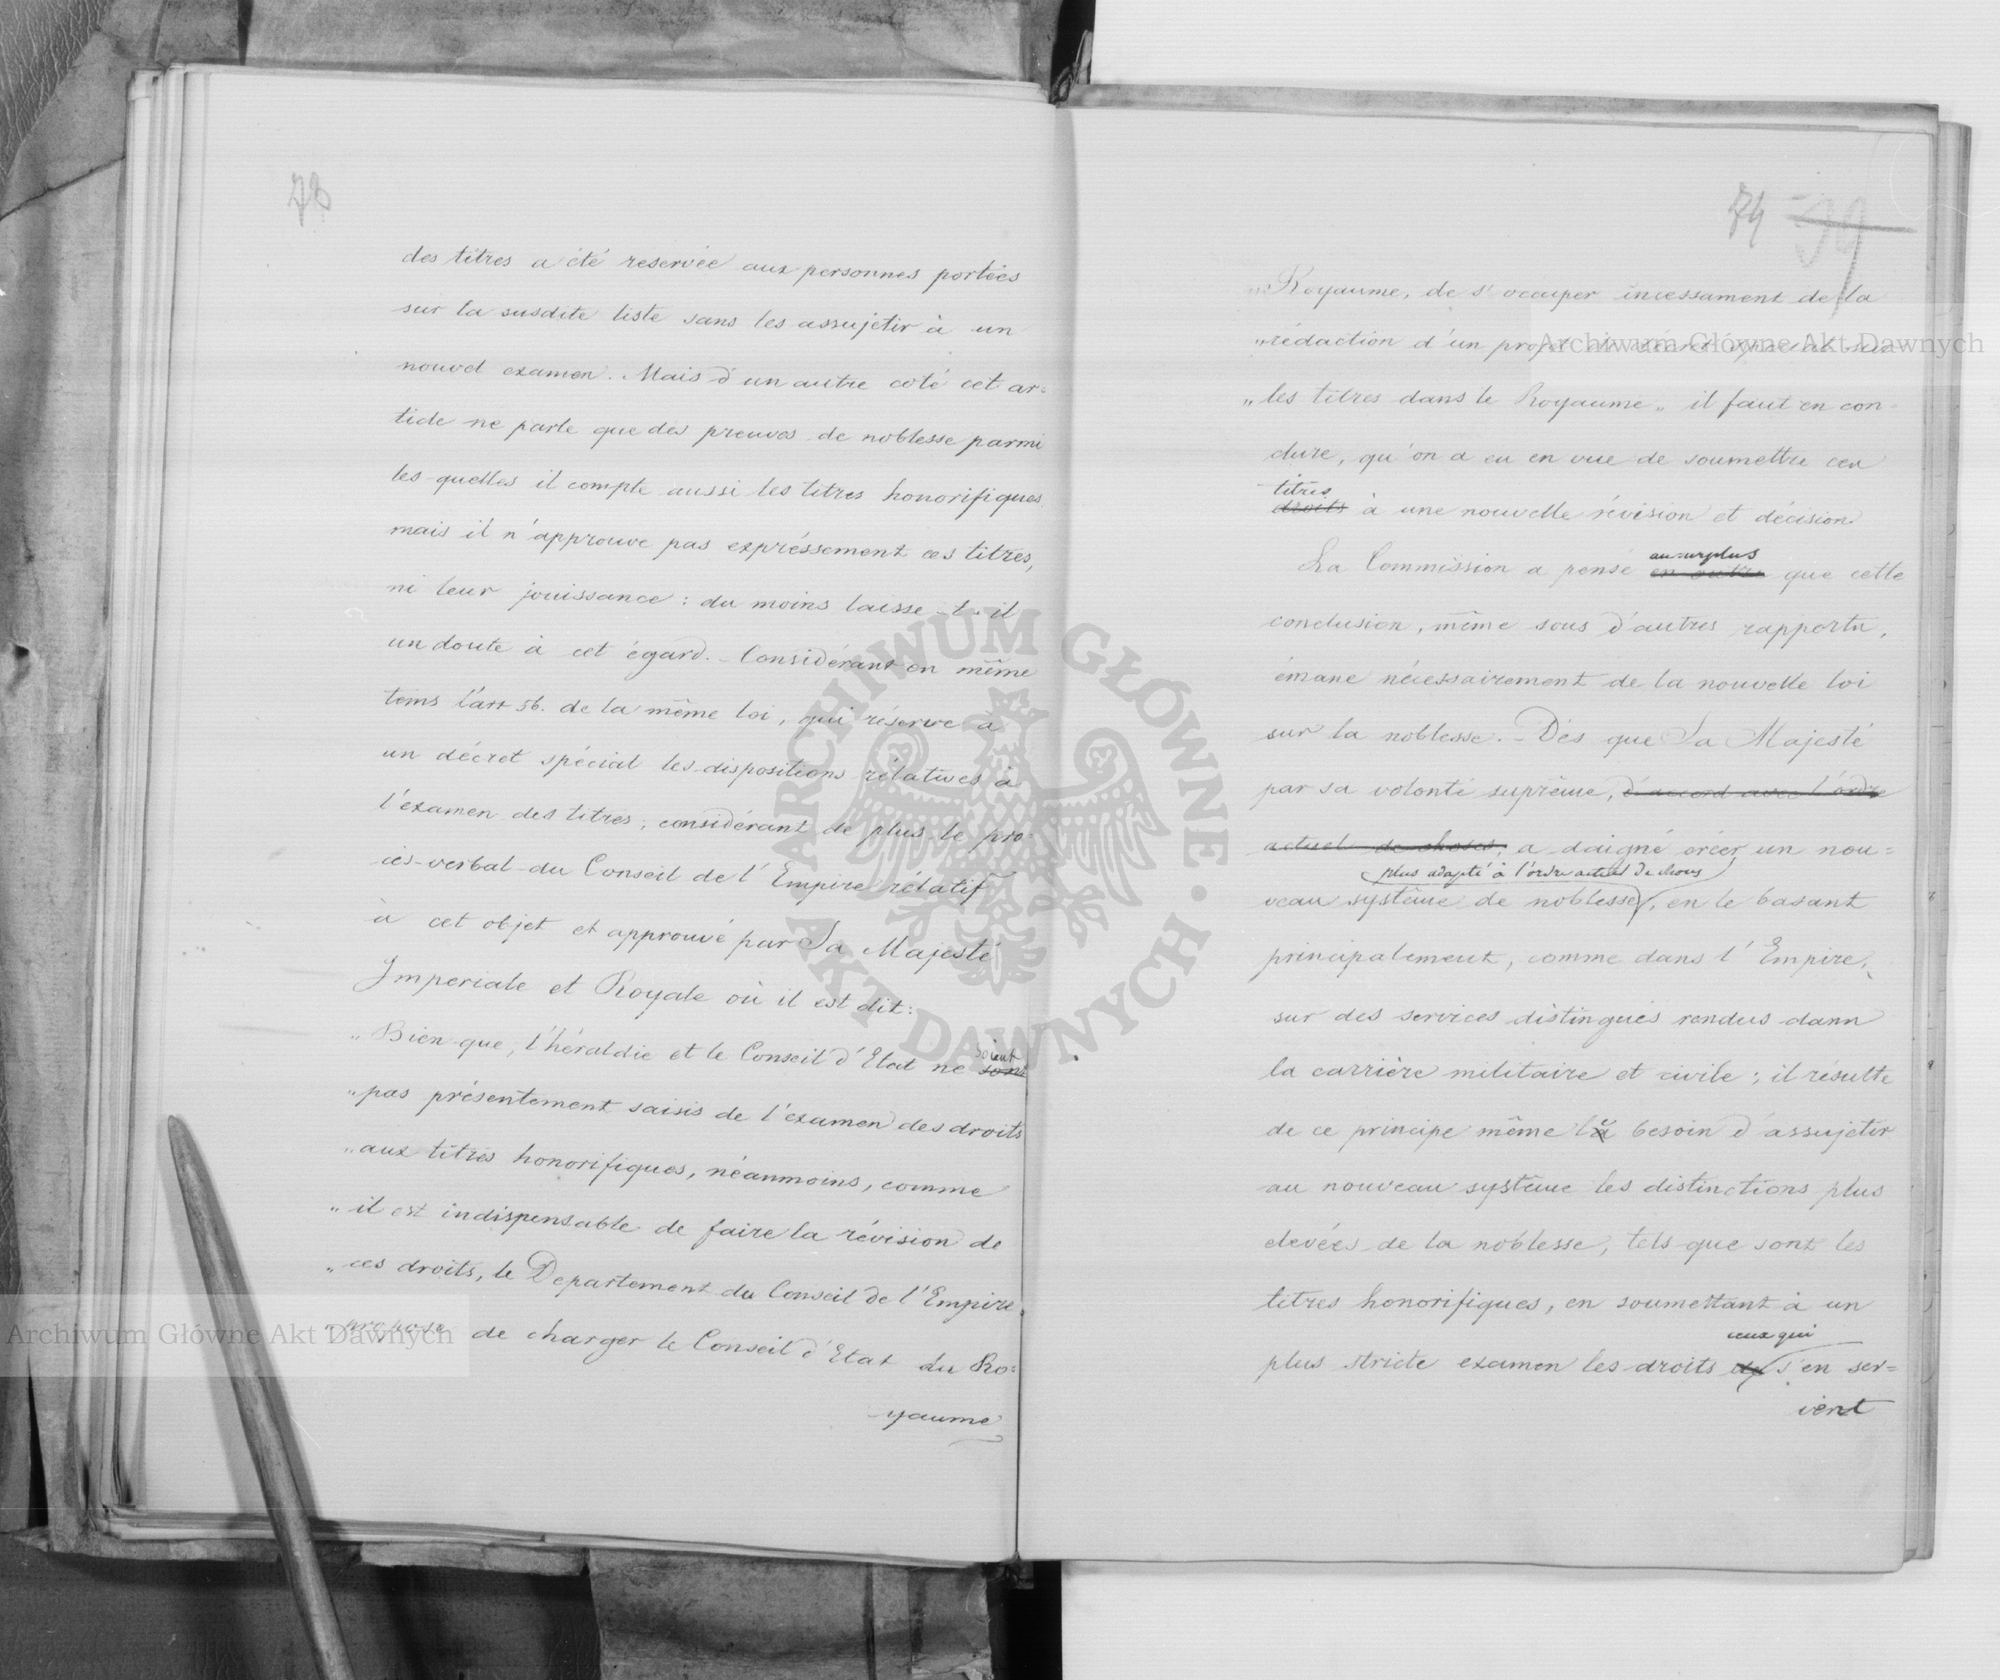 73
des titres a été reservée aux personnes portées
sur la susdite liste sans les assujetir à un
nouvel examen. Mais d'un autre coté cet ar=
ticle ne parle que des preuves de noblesse parmi
les quelles il compte aussi les titres honorifiques
mais il n'approuve pas expréssement ces titres,
ni leur jouissance : du moins laisse-t-il
un doute à cet égard. Considérant en même
tems l'art 56. de la même loi, qui réserve à
un décret spécial les dispositions rélatives à
l'examen des titres, considérant de plus le pro=
cès-verbal du Conseil de l'Empire rélatif
à cet objet et approuvé par Sa Majesté
Imperiale et Royale où il est dit:
„Bien que, l'héraldie et le Conseil d'Etat ne soient sont
„pas présentement saisis de l'examen des droits
„aux titres honorifiques, néanmoins, comme
„il est indispensable de faire la révision de
„ces droits, le Departement du Conseil de l'Empire
„propose de charger le Conseil d'Etat du Ro=
yaume
74 39
„Royaume, de s'occuper incessament de la
„rédaction d'un projet de décret spécial sur
„les titres dans le Royaume„ il faut en con-
clure, qu'on a eu en vue de soumettre ces
titres
droits à une nouvelle révision et décision
au surplus
La Commission a pensé en outre que cette
conclusion, même sous d'autres rapports,
émane nécessairement de la nouvelle loi
sur la noblesse. – Dès que Sa Majesté
par sa volonté suprême, d'accord avec l'ordre
actuel de choses, a daigné créer un nou=
plus adapté à l'ordre actuel de choses
veau système de noblesse, en le basant
principalement, comme dans l'Empire,
sur des services distingués rendus dans
la carrière militaire et civile ; il résulte
de ce principe même le besoin d'assujetir
au nouveau système les distinctions plus
elevées de la noblesse, tels que sont les
titres honorifiques, en soumettant à un
ceux qui
plus stricte examen les droits de s'en ser=
vent
ARCHIWUM GŁÓWNE AKT DAWNYCH
Archiwum Główne Akt Dawnych
Archiwum Główne Akt Dawnych